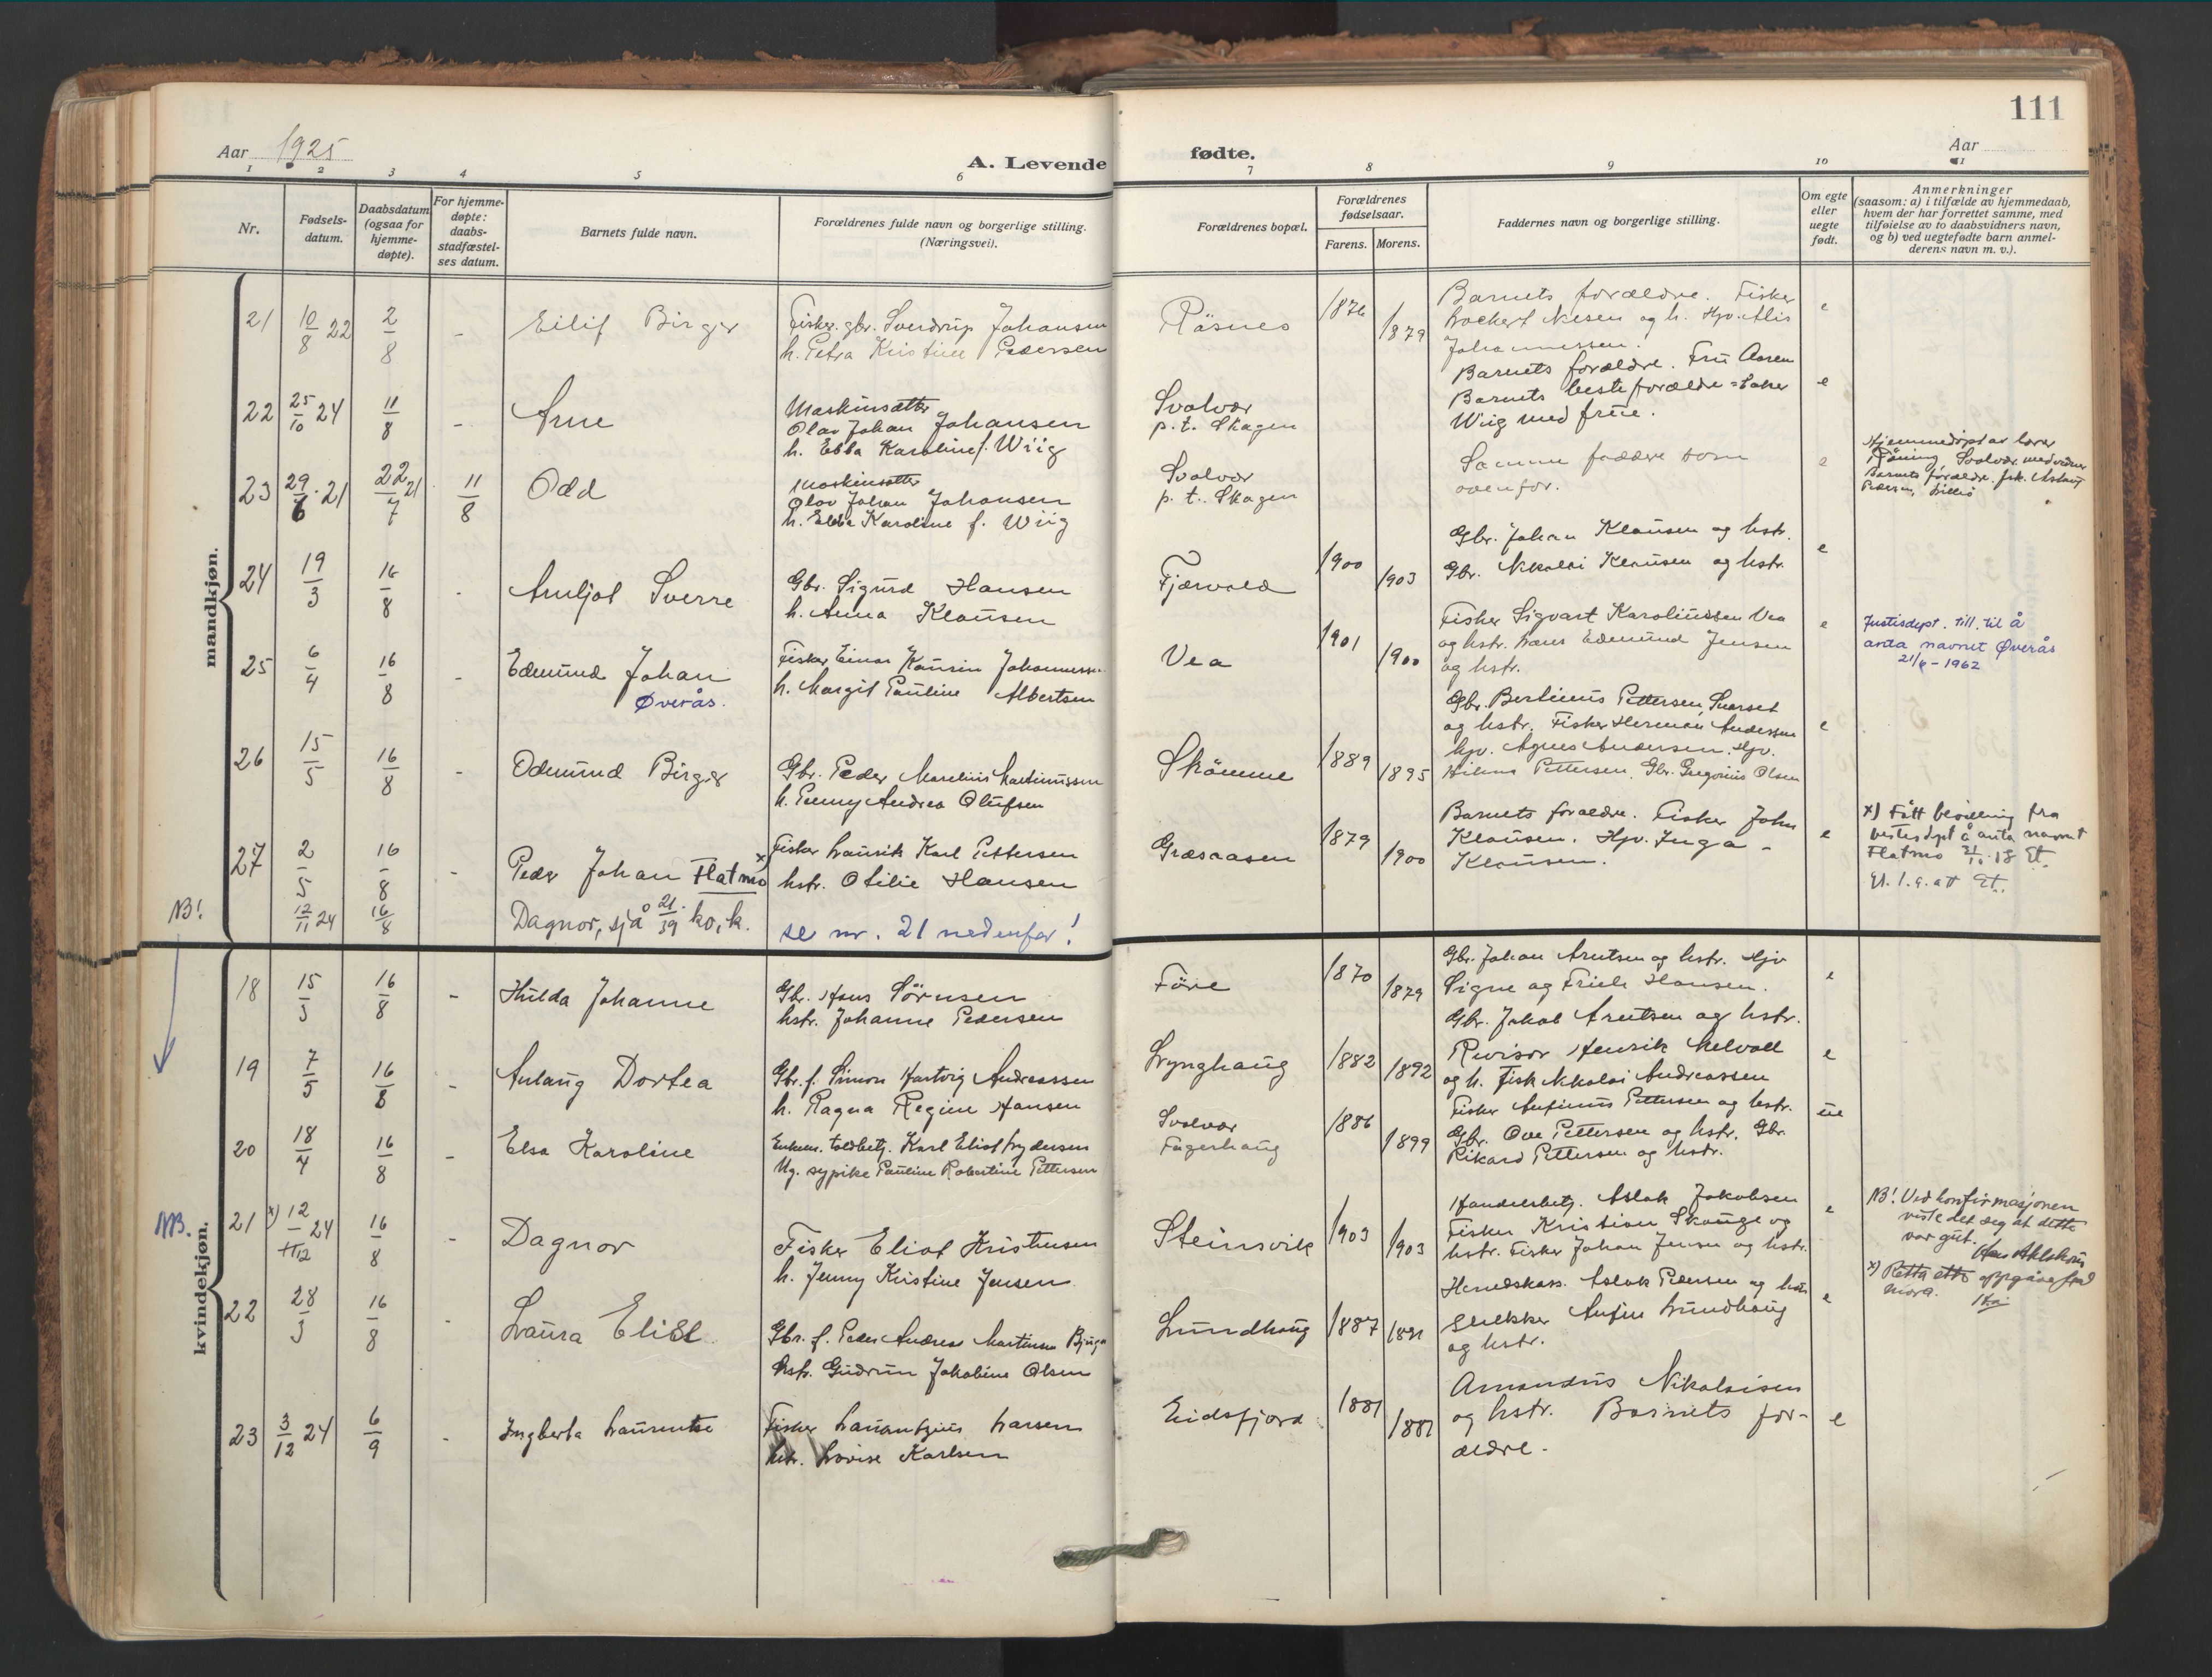 111
Aar 1925
A. Levende fødte.
Aar
1 2 3 4 5 6 7 8 9 10 11
Nr.
Fødsels-
datum.
Daabsdatum
(ogsaa for
hjemme-
døpte).
For hjemme-
døpte:
daabs-
stadfæstel-
ses datum.
Barnets fulde navn.
Forældrenes fulde navn og borgerlige stilling.
(Næringsvei).
Forældrenes bopæl.
Forældrenes
fødselsaar.
Farens. Morens.
Faddernes navn og borgerlige stilling.
Om egte
eller
uegte
født.
Anmerkninger
(saasom: a) i tilfælde av hjemmedaab,
hvem der har forrettet samme, med
tilføielse av to daabsvidners navn,
og b) ved uegtefødte barn anmel-
derens navn m. v.).
mandkjøn.
21 10/8 22 2/8 - Eilif Birger
Fisker. gbr. Sverdrup Johansen
h. Petra Kristine Pedersen
Råsnes 1876 1879
Barnets forældre. Fisker
og h. Hjv.
Johannessen.
e
22 25/10 24 11/8 - Arne
Maskinsætter
Olav Johan Johansen
h. Ebba Karoline f. Wiig
Svolvær
p. t. Skagen
Barnets forældre. Fru Aasen
Barnets besteforældre
Wiig med frue.
e
23 29/6 21 22/7 21 11/8 Odd
Maskinsætter
Olav Johan Johansen
h. Ebba Karoline f. Wiig
Svolvær
p. t. Skagen
Samme faddere som
ovenfor.
e
Hjemmedøpt av lærer
Svolvær, med vidner
Barnets forældre. frk.
Pedersen,
24 19/3 16/8 - Arnljot Sverre
Gbr. Sigurd Hansen
h. Anna Klausen
Fjærvold 1900 1903
Gbr. Johan Klausen og hstr.
Gbr. Nikolai Klausen og hstr.
e
25 6/4 16/8 - Edmund Johan
Øverås.
Fisker Einar Johannessen
h. Margit Pauline Albertsen
Vea 1901 1900
Fisker Sigvart Karolinssen Vea
og hstr. Hans Edmund Jensen
og hstr.
e
Justisdept. till. til å
anta navnet Øverås
21/6 - 1962
26 15/5 16/8 - Odmund Birger
Gbr. Peder Marelius Martinussen
h. Penny Andrea Olufsen
Skåmme 1889 1895
Gbr. Bertinus Pettersen,
og hstr. Fisker Herman Andersen
hjv. Agnes Andersen. Hjv.
Pettersen. Gbr. Gregorius Olsen
e
27 2/5 16/8 - Peder Johan Flatmo x
Fisker Lauritz Karl Pettersen
hstr. Otilie Hansen
Græsaasen 1879 1900
Barnets forældre. Fisker John
Klausen. Hjv. Inga -
Klausen.
e
x) Fått bevilling fra
å anta navnet
Flatmo
NB! 12/11 24 16/8 Dagnor, sjå 21/39 ko, k.
se nr. 21 nedenfor!
kvindekjøn.
18 15/5 16/8 - Hulda Johanne
Gbr. Hans Sørnsen
hstr. Johanne Pedersen
Føre 1870 1879
Gbr. Johan Arntsen og hstr. Hjv
Signe og Hansen.
Gbr. Jakob Arntsen og hstr.
e
19 7/5 16/8 - Anlaug Dortea
Gbr. f. Simon Hartvig Andreassen
h. Ragna Regine Hansen
Lynghaug 1882 1892
Revisor Henrik Melvoll
og h. Fisk Nikolai Andreassen
e
20 18/4 16/8 - Elsa Karoline
Karl Eliot
Ug. sypike Pauline Robertine Pettersen
Svolvær
Fagerhaug
1886 1899
Fisker Anfinus Pettersen og hstr.
Gbr. Ove Pettersen og hstr. Gbr.
Rikard Pettersen og hstr.
ue
NB. 21 x) 12/ 24 16/8 - Dagnor
Fisker Eliot Kristensen
h. Jenny Kristine Jensen
Steinsvik 1903 1903
Handelsbetj. Aslak Jakobsen
Fisker Kristian Skauge og
hstr. Fisker Johan Jensen og hstr.
e
NB! Ved konfirmasjonen
viste det seg at dette
var gut.
x) Retta etter oppgåve frå
mora.
22 28/3 16/8 - Laura Elise
Gbr. f. Peder Andreas Martinsen
hstr. Gudrun Jakobine Olsen
Lundhaug 1887 1891
Aslak Pedersen og
Anfin Lundhaug
og hstr.
e
23 3/12 24 6/9 - Ingberta Laurentse
Fisker Laurentzius Larsen
hstr. Lovise Karlsen
Eidsfjord 1881 1881
Amandus Nikolaisen
og hstr. Barnets for-
ældre.
e